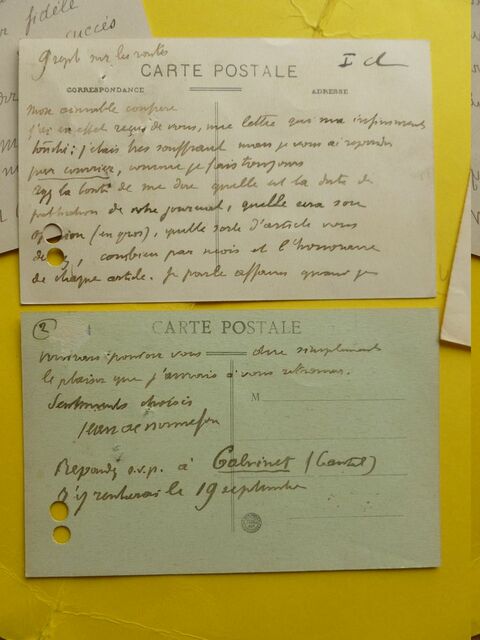 fidèle
succès
9 sept sur les routes
I
CARTE POSTALE
CORRESPONDANCE
ADRESSE
mon aimable confrère
j'ai en effet reçu de vous, une lettre qui m'a infiniment
touché ; j'étais très souffrant mais je vous ai répondu
par courrier, comme je fais toujours
la bonté de me dire quelle est la date de
publication de votre journal, quelle sera son
(en gros), quelle sorte d'article vous
combien par mois et l'honoraire
de chaque article. Je parle affaires quand je
2
CARTE POSTALE
voudrais pouvoir vous dire simplement
le plaisir que j'aurais à vous retrouver.
M
Sentiments choisis
Jean de
Répondez s.v.p. à (Cantal)
J'y rentrerai le 19 septembre